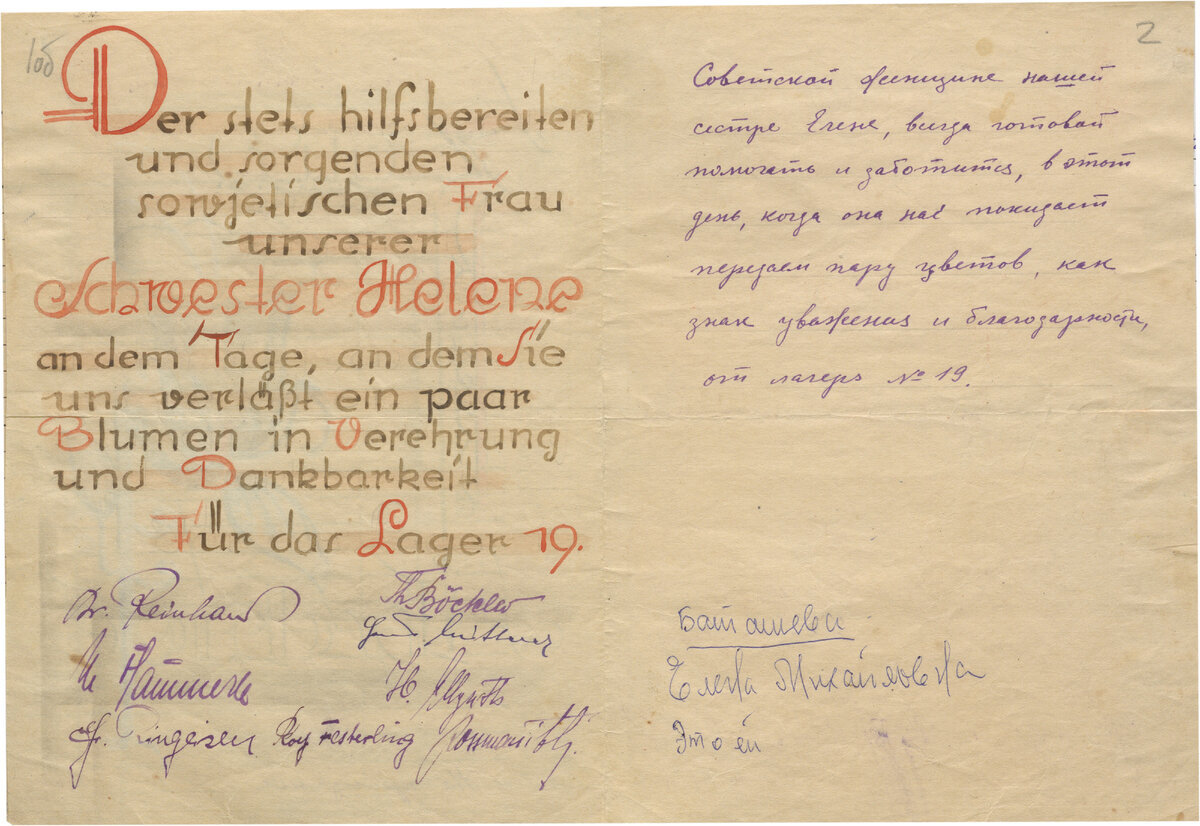 1об
Der stets hilfsbereiten
und sorgenden
sowjetischen Frau
unserer
Schwester Helene
an dem Tage, an dem Sie
uns verläßt ein paar
Blumen in Verehrung
und Dankbarkeit
Für das Lager 19.
Dr. Reinhard
Th Böckler
H.
2
Советской женщине нашей
сестре Елене, всегда готовой
помогать и заботится, в этот
день, когда она нас покидает
передаем пару цветов, как
знак уважения и благодарности,
от лагеря № 19.
Баташева
Елена Михайловна
Это ей